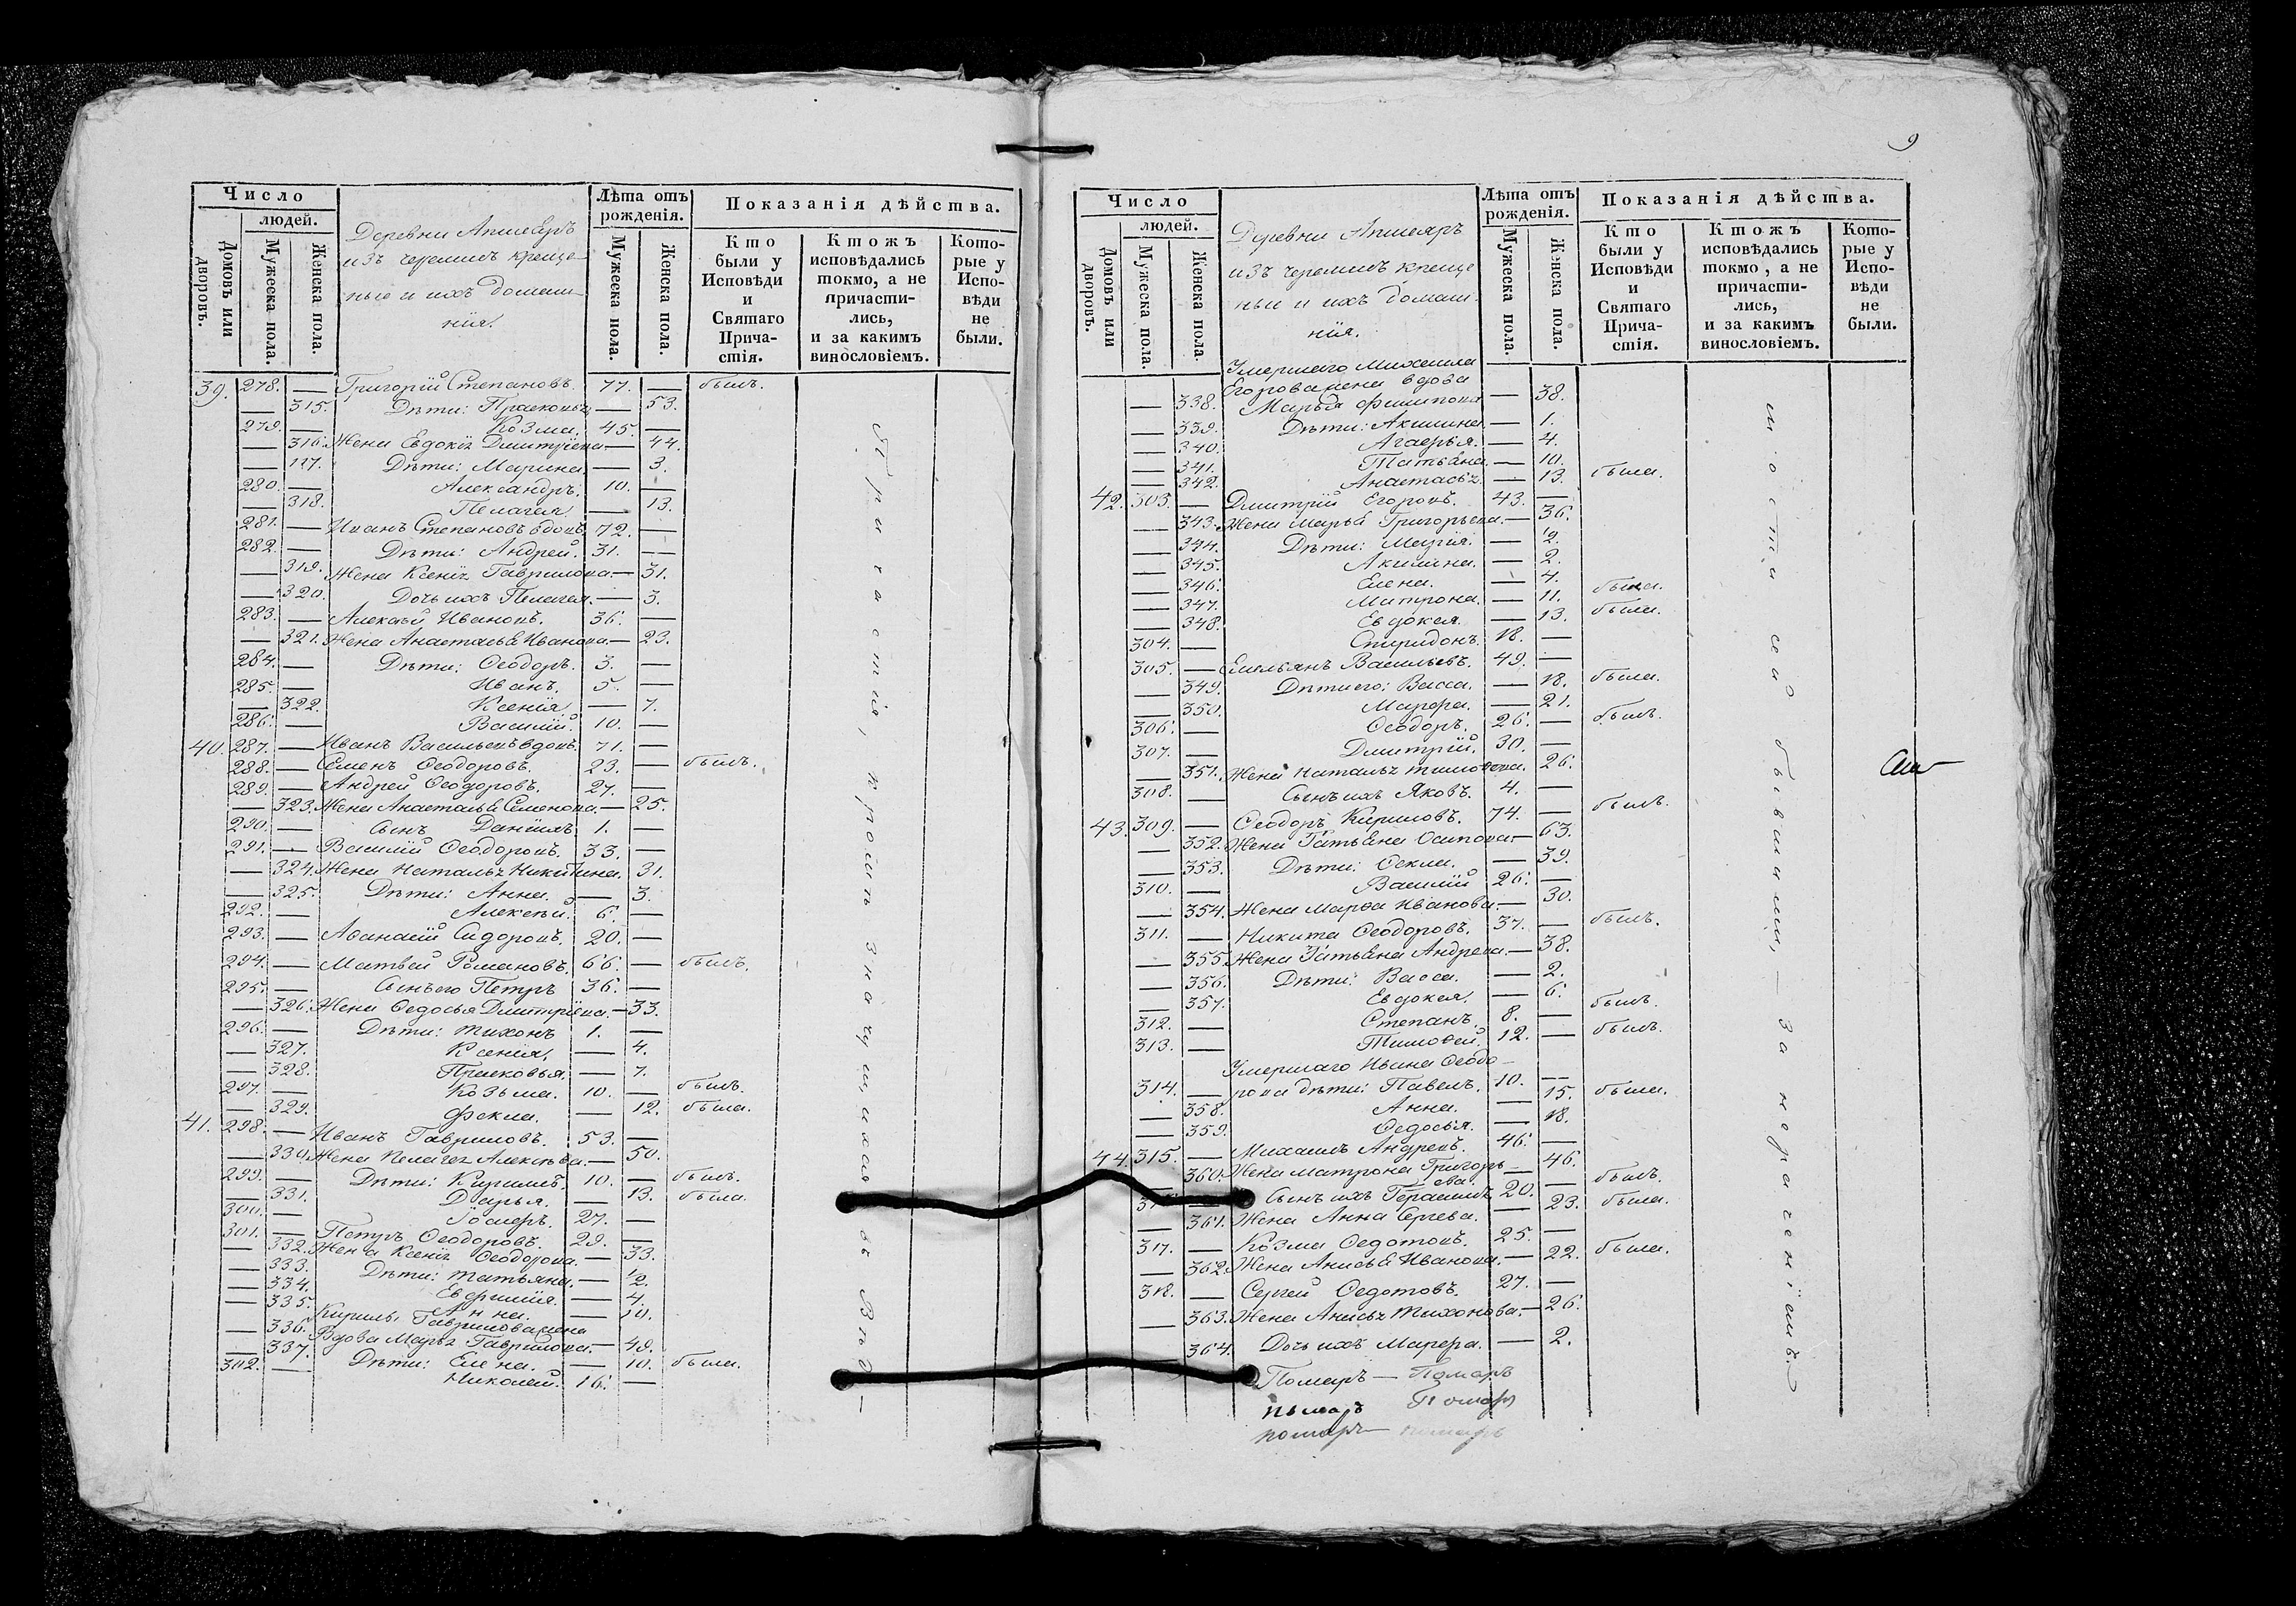 9
Число
людей.
Домовъ или дворовъ.
Мужеска пола.
Женска пола.
Деревни Апшеяръ
изъ черемисъ креще-
ные и ихъ домаш-
нія.
Лѣта отъ рожденія.
Мужеска пола.
Женска пола.
Показанія дѣйства.
Кто были у Исповѣди и Святаго Прича-стія.
Ктожъ исповѣдались токмо, а не причасти-лись, и за какимъ винословіемъ.
Кото-рые у Испо-вѣди не были.
39. 278. — Григорій Степановъ. 77. — былъ.
— 315. Дѣти: Прасковья — 53.
279. — Козма. 45. —
— 316. Жена Евдокія Дмитріева — 44.
— 117. Дѣти: Марина. — 3.
280. — Александръ. 10. —
— 318. Пелагея — 13.
281. — Иванъ Степановъ вдовъ 72. —
282. — Дѣти: Андрей. 31. —
— 319. Жена Ксенія Гаврилова. — 31.
— 320. Дочь ихъ Пелагея. — 3.
283. — Алексѣй Ивановъ. 36. —
— 321. Жена Анастасья Иванова. — 23.
284. — Дѣти: Ѳеодоръ. 3. —
285. — Иванъ. 5. —
— 322. Ксенія. — 7.
286. — Василій. 10. —
40. 287. — Иванъ Васильевъ вдовъ. 71. —
288. — Семенъ Ѳеодоровъ. 23. — былъ.
289. — Андрей Ѳеодоровъ. 27. —
— 323. Жена Анастасья Семенова. — 25.
290. — Сынъ Даніилъ 1. —
291. — Василій Ѳеодоровъ. 33. —
— 324. Жена Наталья Никитина. 31.
— 325. Дѣти: Анна. — 3.
292. — Алексѣй. 6. —
293. — Аѳанасій Сидоровъ. 20. —
294. — Матвей Романовъ. 66. — былъ.
295. — Сынъ его Петръ 36. —
— 326. Жена Ѳедосья Дмитріева. — 33.
296. — Дѣти: Тихонъ 1. —
— 327. Ксенія. — 4.
— 328. Прасковья. — 7.
297. — Козьма. 10. — былъ.
— 329. Фекла. — 12. была.
41. 298. — Иванъ Гавриловъ. 53. —
— 330. Жена Пелагея Алексѣева. — 50.
299. — Дѣти: Кирилъ. 10. — былъ.
— 331. Дарья. — 13. была.
300. — 27. —
301. — Петръ Ѳеодоровъ. 29. —
— 332. Жена Ксенія Ѳеодорова. — 33.
— 333. Дѣти: Татьяна. — ½.
— 334. Евфимія. — 4.
— 335. Анна. — 10.
Кирилы Гаврилова жена
— 336. Вдова Марья Гаврилова. — 49.
— 337. Дѣти: Елена. — 10. была.
302. — Николай. 16. —
Причастія, кромѣ значущихся въ Вѣд—
Число
людей.
Домовъ или дворовъ.
Мужеска пола.
Женска пола.
Деревни Апшеяръ
изъ черемисъ креще
ные и ихъ домаш-
нія.
Лѣта отъ рожденія.
Мужеска пола.
Женска пола.
Показанія дѣйства.
Кто были у Исповѣди и Святаго Прича-стія.
Ктожъ исповѣдались токмо, а не причасти-лись, и за какимъ винословіемъ.
Кото-рые у Испо-вѣди не были.
Умершаго Михаила
Егорова жена вдова
— 338. Марья Филипова — 38.
— 339. Дѣти: Акилина. — 1.
— 340. Агафья. — 4.
— 341. Татьяна. — 10.
— 342. Анастасья. — 13. была.
42. 303. — Дмитрій Егоровъ. 43. —
— 343. Жена Марья Григорьева. — 36.
— 344. Дѣти: Марія. — ½.
— 345. Акилина. — 2.
— 346. Елена. — 4.
— 347. Матрона. — 11. была.
— 348. Евдокея. — 13. была.
304. — Спиридонъ. 18. —
305. — Емельянъ Васильевъ. 49. —
— 349. Дѣти его: Васса. — 18. была.
— 350. Марфа. — 21.
306. — Ѳеодоръ. 26. — былъ.
307. — Дмитрій. 30. —
— 351. Жена Наталья Тимоѳеева. 26.
308. — Сынъ ихъ Яковъ. 4. —
43. 309. — Ѳеодоръ Кириловъ. 74. — былъ.
— 352. Жена Татьяна Осипова — 63.
— 353. Дѣти: Ѳекла. — 39.
310. — Василій 26. —
— 354. Жена Марѳа Иванова. — 30.
311. — Никита Ѳеодоровъ. 37. — былъ.
— 355. Жена Татьяна Андреева. — 38.
— 356. Дѣти: Васса. — 2.
— 357. Евдокея. — 6.
312. — Степанъ. 8. — былъ.
313. — Тимоѳей. 12. — былъ.
Умершаго Ивана Ѳеодо—
314. — рова дѣти: Павелъ. 10. —
— 358. Анна. — 15. была.
— 359. Ѳедосья. — 18.
44. 315. — Михаилъ Андреевъ. 46. —
360. Жена Матрона Григорь-ева. — 46.
— Сынъ ихъ Герасимъ 20. — былъ.
— 361. Жена Анна Сергева. — 23. была.
317. — Козма Ѳедотовъ. 25. —
— 362. Жена Анисья Иванова. — 22. была.
318. — Сергей Ѳедотовъ. 27. —
— 363. Жена Анисья Тихонова. — 26.
— 364. Дочь ихъ Марфа. — 2.
Помаръ — Помаръ
помаръ Помаръ
помаръ — помаръ
мости сей бывшими, — за нераченіемъ.